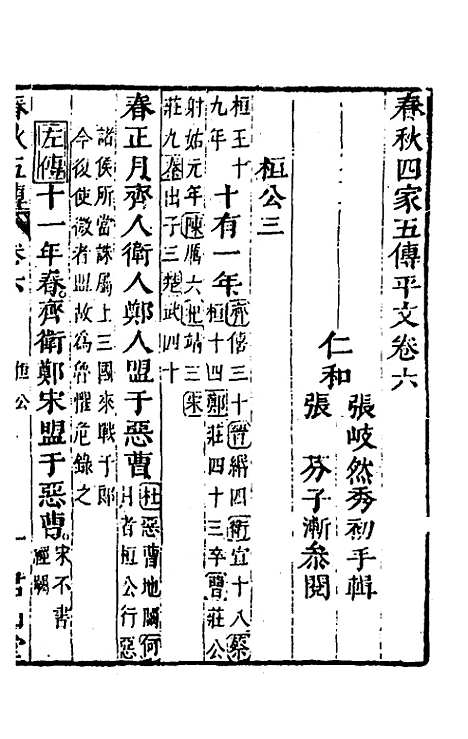 春秋四家五傳平文卷六
仁和
張岐然秀初手輯
張　芬子漸叅閱
桓公三
桓王十九年
十有一年
齊僖三十晉緡四衛宣十八蔡
桓十四鄭莊四十三卒曹莊公
射姑元年陳厲六杞靖三宋
莊九秦出子三楚武四十
春正月齊人衛人鄭人盟于惡曹
杜惡曹地闕何
月者桓公行惡
諸侯所當誅屬上三國來戰于郎
今復使微者盟故爲魯懼危錄之
左傳十一年春齊衛鄭宋盟于惡曹
宋不書
經闕
春秋五傳
卷六
桓公
一